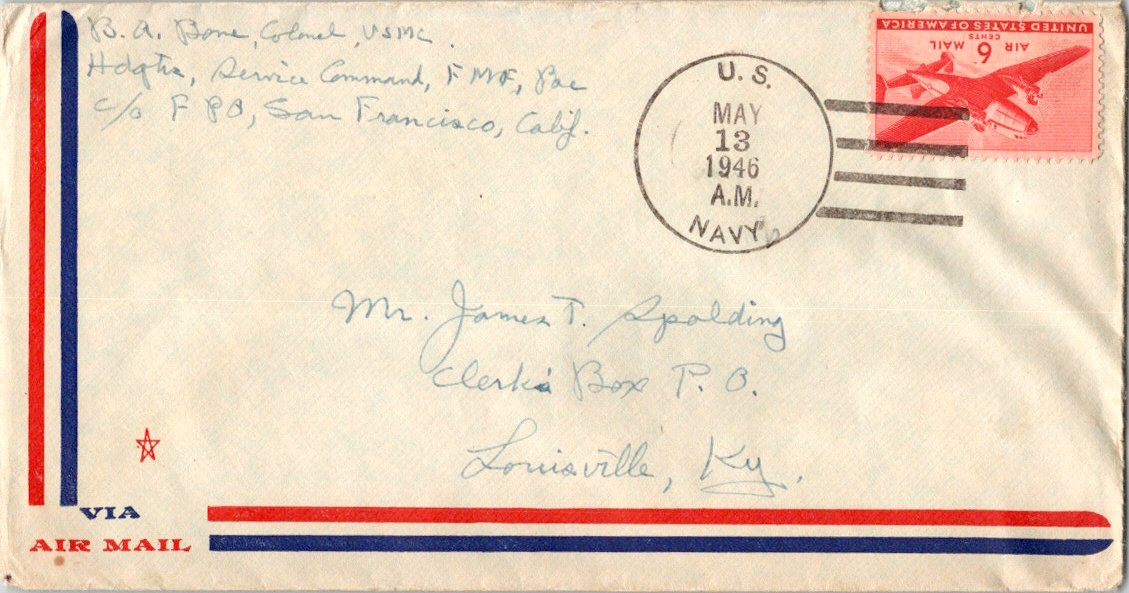 B. A. Bone, Colonel, USMC.
Hdqtrs, Service Command, FMF, Pac
c/o F P O, San Francisco, Calif.
U. S.
MAY
13
1946
A.M.
NAVY
UNITED STATES OF AMERICA
AIR 6 MAIL
CENTS
Mr. James T. Spalding
Clerk's Box P. O.
Louisville, Ky.
VIA
AIR MAIL